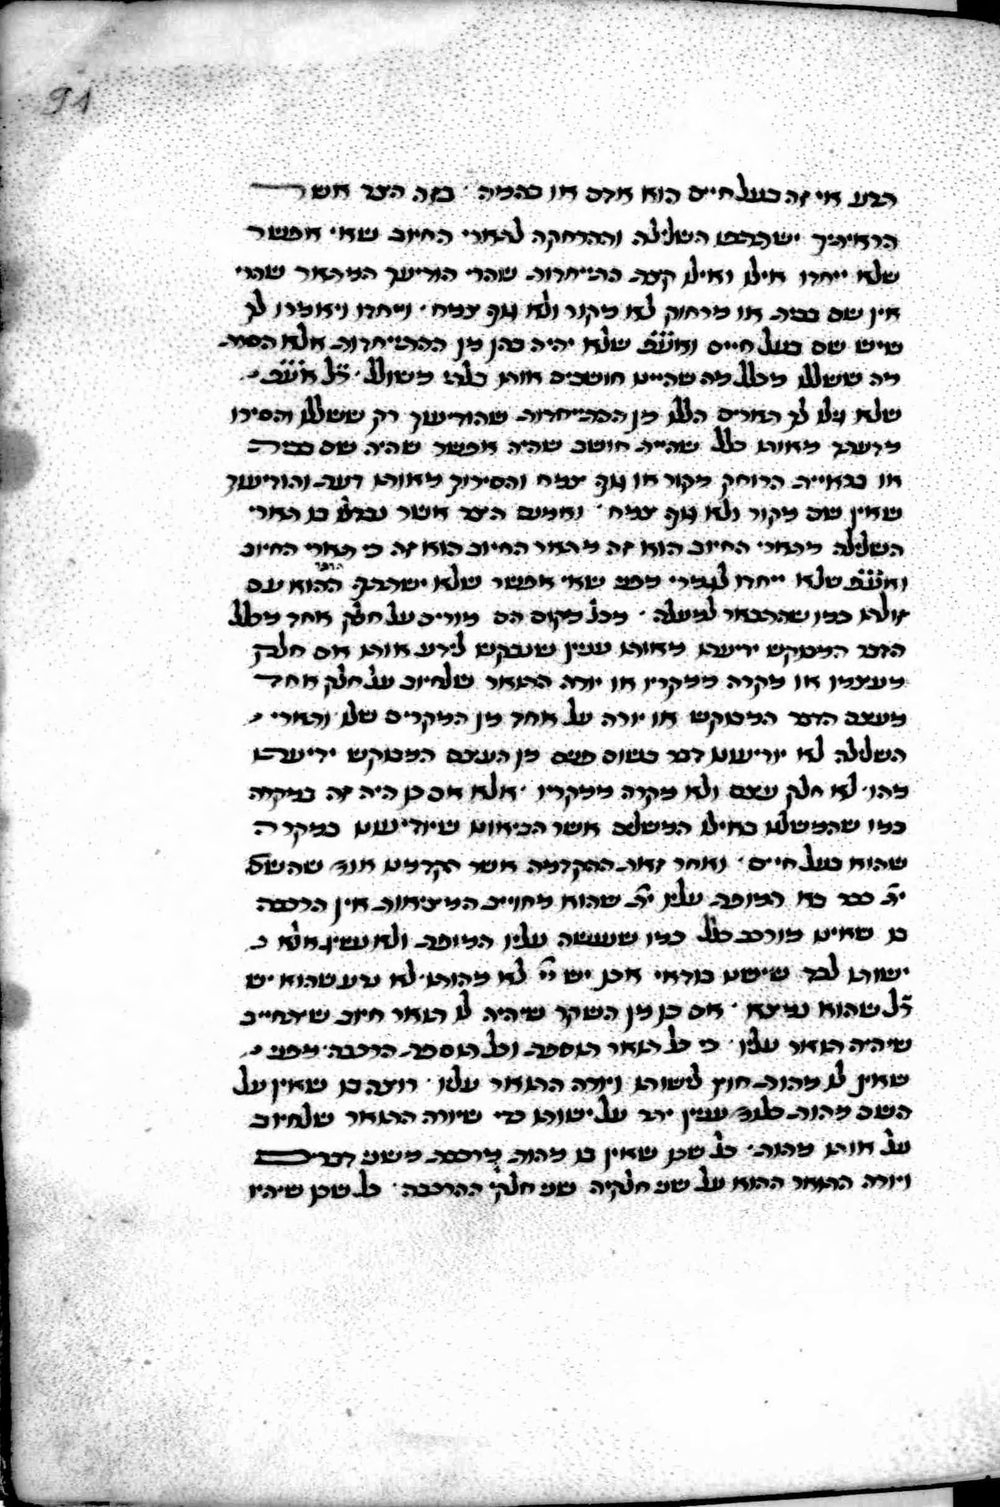 91
תדע אי זה בעל חיים הוא אדם או בהמה · בזה הצד אשר
הראיתיך ישתתפו השלילה וההרחקה לתארי החיוב שאי אפשר
שלא ייחדו אילו ואילו קצת התייחדות שהרי הודיעך המתאר שהרי
אין שם בבית או מרחוק לא מקור ולא גוף צמח · וייחדו ויאמרו לך
שיש שם בעל חיים ואע״פ שלא יהיה בהן מן ההתייחדות אלא הסרת
מה ששללו מכלל מה שהיינו חושבים אותו בלתי משולל · ר״ל אע״פ
שלא גלו לך התארים הללו מן ההתייחדות שהודיעך רק ששללו והסירו
מדעתך מאותו כלל שהיית חושב שהיה אפשר שהיה שם בבית
או בראיית הרוחק מקור או גוף צמח והסירוך מאותו דעת והודיעוך
שאין שם מקור ולא גוף צמח · ואמנם הצד אשר נבדלו בו תארי
השלילה מתארי החיוב הוא זה מתאר החיוב הוא זה כי תארי החיוב
ואע״פ שלא ייחדו לגמרי מפני שאי אפשר שלא ישתתף ההוא עם
זולתו כמו שהתבאר למעלה · מכל מקום הם מורים על חלק אחד מכלל
הדבר המבוקש ידיעתו מאותו ענין שנבקש לידע אותו אם חלק
מעצמו או מקרה ממקריו או יורה התואר שלחיוב על חלק אחד
מעצם הדבר המבוקש או יורה על אחד מן המקרים שלו ותארי
השלילה לא יודיעונו דבר בשום פנים מן העצם המבוקש ידיעתו
מהו · לא חלק עצם ולא מקרה ממקריו · אלא אם כן היה זה במקרה
כמו שהמשלנו באילו המשלים אשר הביאונו שיודיענו במקרה
שהוא בעל חיים · ואחר זאת ההקדמה אשר הקדמנו אומר שהשם
ית׳ כבר בא המופת עליו ית׳ שהוא מחוייב המציאות אין הרכבה
בו שאינו מורכב כלל כמו שנעשה עליו המופת ולא נשיג אלא
ישותו לבד שישנו בודאי אכן יש יי׳ לא מהותו לא נדע שהוא יש
ר״ל שהוא נמצא · אם כן מן השקר שיהיה לו תואר חיוב שיתחייב
שיהיה תואר עליו · כי כל תואר תוספת וכל תוספת הרכבה · מפני
שאין לו מהות חוץ לישותו ויורה התואר עליו · רוצה בו שאין על
השם מהות כלומר ענין יתר על ישותו כדי שיורה התואר שלחיוב
על אותו מהות · כל שכן שאין בו מהות מורכבת משני דברים
ויורה התואר ההוא על שני חלקיה שני חלקי ההרכבה · כל שכן שיהיו